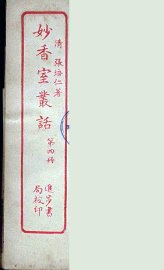 清 張培仁著
妙香室叢話
第四冊
進步書局校印